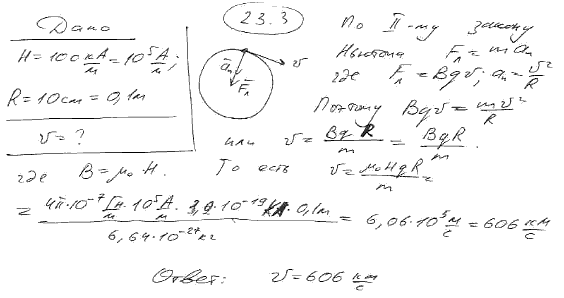 23.3
Дано
H = 100 кА/м = 10⁵ А/м;
R = 10 см = 0,1 м
v = ?
По II-му закону
Ньютона Fл = maₙ
где Fл = Bqv; aₙ = v²/R
Поэтому Bqv = mv²/R
или v = BqR/m = BqR/m.
где B = μ₀H. То есть v = μ₀HqR/m =
= 4π·10⁻⁷ Гн/м · 10⁵ А/м · 3,2·10⁻¹⁹ Кл · 0,1м / 6,64·10⁻²⁷ кг = 6,06·10⁵ м/с = 606 км/с
Ответ: v = 606 км/с
aₙ
Fл
v